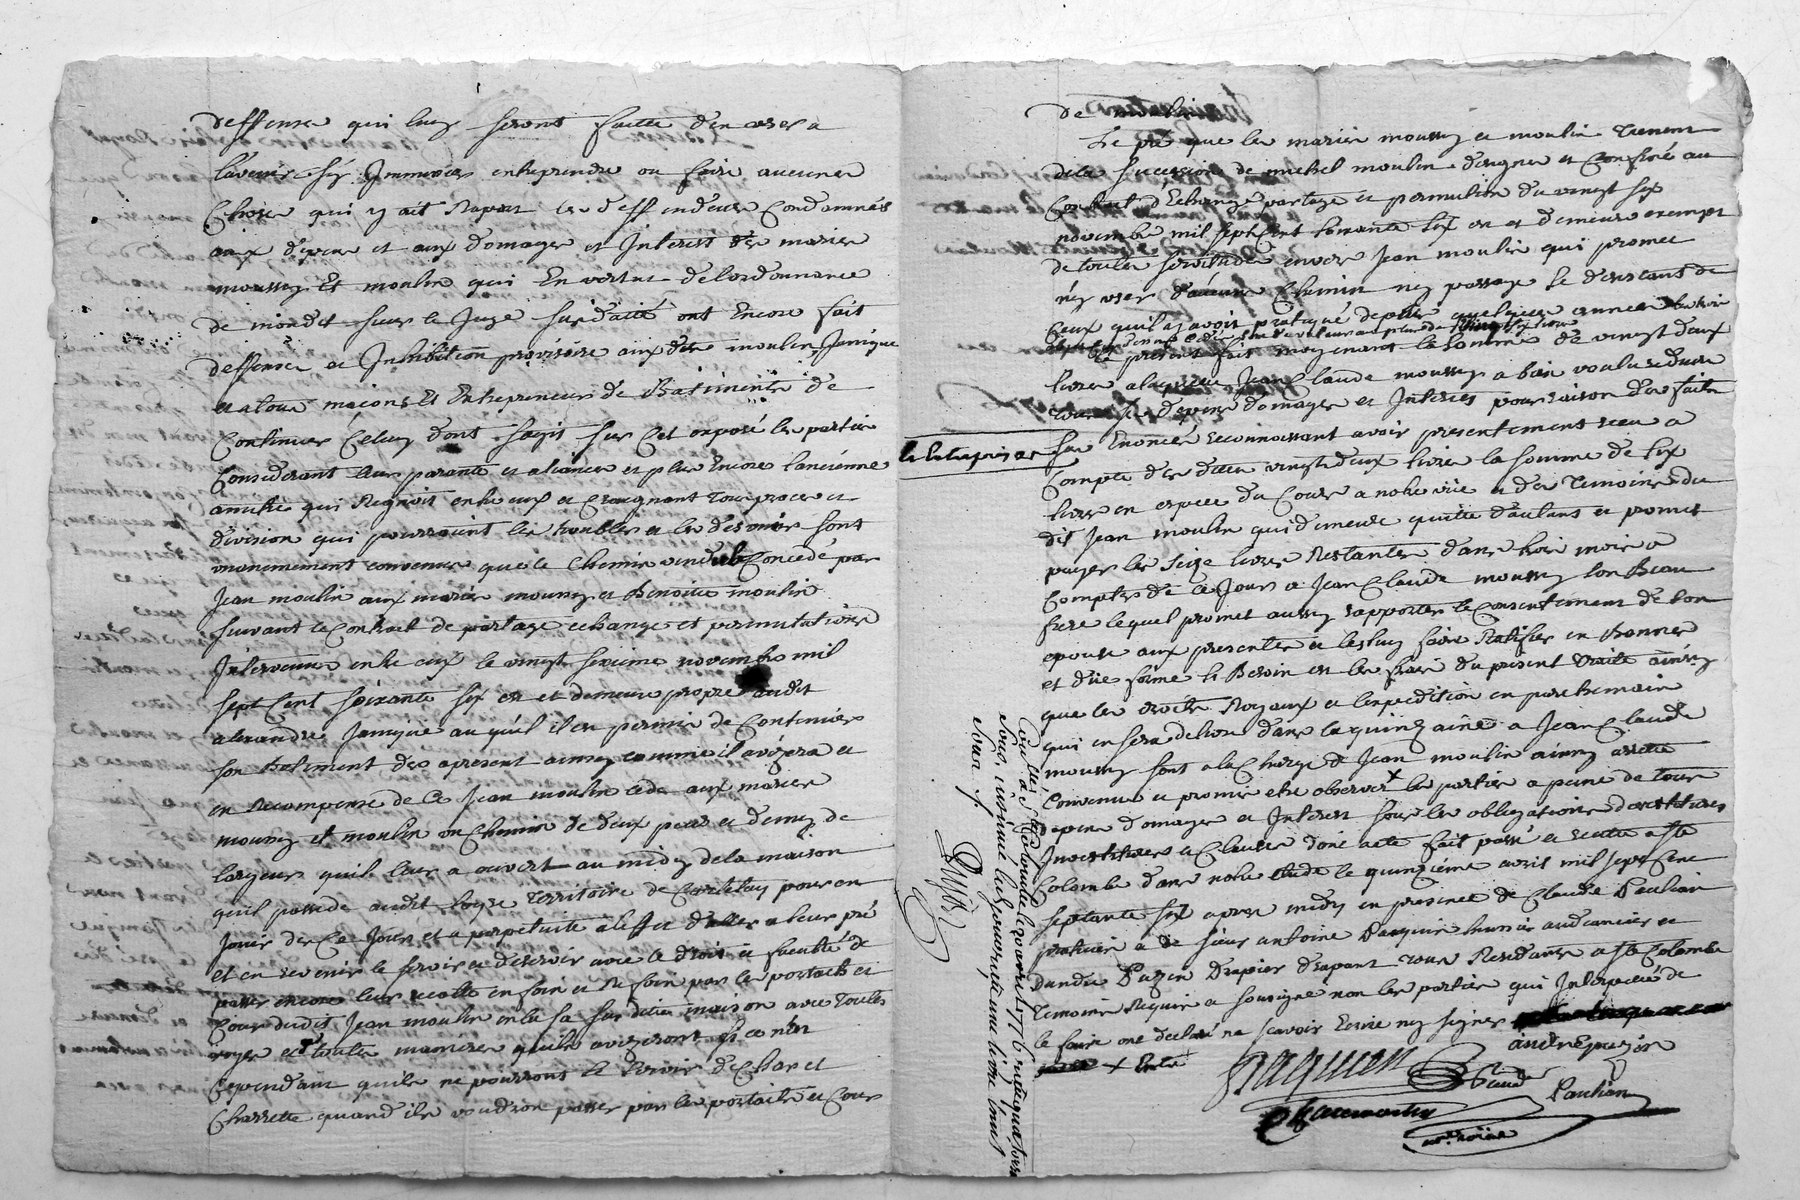 deffense qui luy seront faitte d'en user a
lavenir sy Immiscer entreprendre ou faire aucunes
Choses qui y ait Raport les deffendeurs Condamnés
aux depens et aux domages et Interest des mariés
moussy Et moulin qui En vertut de lordonnance
de mondit sieur le Juge surdatté ont Encore fait
deffense et Inhibition provisoire aux dits moulin Janique
et a tous maçons Et Entrepreneurs de Batiments de
Continuer Celuy dont sagit sur Cet exposé les parties
Considerant leur parenté et aliances et plus Encore lancienne
amitié qui Regnoit entre eux et Craignant tous proces et
division qui pourroient les troubler et les desunir sont
unanimement convenues que le Chemin vendu Concedé par
Jean moulin aux mariés moussy et Benoitte moulin
suivant le Contract de partage echange et permutations
Intervenue entre eux le vingt sixieme novembre mil
sept Cent soixante six est et demeure propre audit
alexandre Janique au quel il est permis de Continuer
son Batiment des apresent ainsy comme il avizera et
en Recompense de Ce Jean moulin cede aux mariés
moussy et moulin un Chemin de deux pieds et demy de
largeur quil leur a ouvert au midy de la maison
quil possede audit lieu territoire de pour en
Jouir des Ce Jour et a perpetuité a leffet daller a leur pré
et en revenir le servir et deservir avec le droit et faculté de
passer encore leur recolte en foin et Refoin par les portails et
Cour dudit Jean moulin en la sa sur ditte maison avec toutes
et toutes manieres quils avizeront si ce n'est
Cependant quils ne pourront se servir de Char et
Charrette quand ils voudron passer par les portails et Cour
de moulin
Le pré que les mariés moussy et moulin tienent
de la succession de michel moulin designé et Confiné au
Contract d'Echange partage et permution du vingt six
novembre mil sept Cent soixante six est et demeure exempt
de toutes servitudes envers Jean moulin qui promet
n'y user d'aucun Chemin ny passage se desistant de
Ceux quil y avoit pratiqué depuis quelques années
Le present fait moyenant la somme de vingt deux
livres a laquelle Jean Claude moussy a bien voulu reduire
tous les depens domages et Interets pour raison des faits
sus Enoncés reconnoissant avoir presentement receu a
Compte des dittes vingt deux livres la somme de six
livres en espece du Cours a notre vüe et des temoins du
dit Jean moulin qui demeure quitte d'autant et promet
payer les seize livres Restantes dans trois mois a
Compter de Ce Jour a Jean Claude moussy son Beau
frere lequel promet aussy rapporter le Consentement de son
epouse aux presentes et les luy faire Ratifier en bonnes
et düe forme si Besoin est les frais du present traité ainsy
que les droits Royaux et lexpedition en parchemain
qui en sera delivré dans la quinzaine a Jean Claude
moussy sont a la Charge de Jean moulin ainsy arretté
Convenu et promis etre observer les parties a peine de tous
depens domages et Interest sous les obligations
et Clauses donc acte fait passé et recitte a ste
Colombe dans notre etude le quinzieme avril mil sept Cent
septante six apres midy en presence de Claude Paulian
praticien et de sieur antoine Paquien huissier audiancier et
d'andré Puzin drapier drapant tous Residants a ste Colombe
temoins Requis et soussigné non les parties qui Interpellé de
le faire ont declaré ne scavoir Ecrire ny signer
Paquien
andrepuzin
Paulian
Chaumartin
no.re roial
Dujast